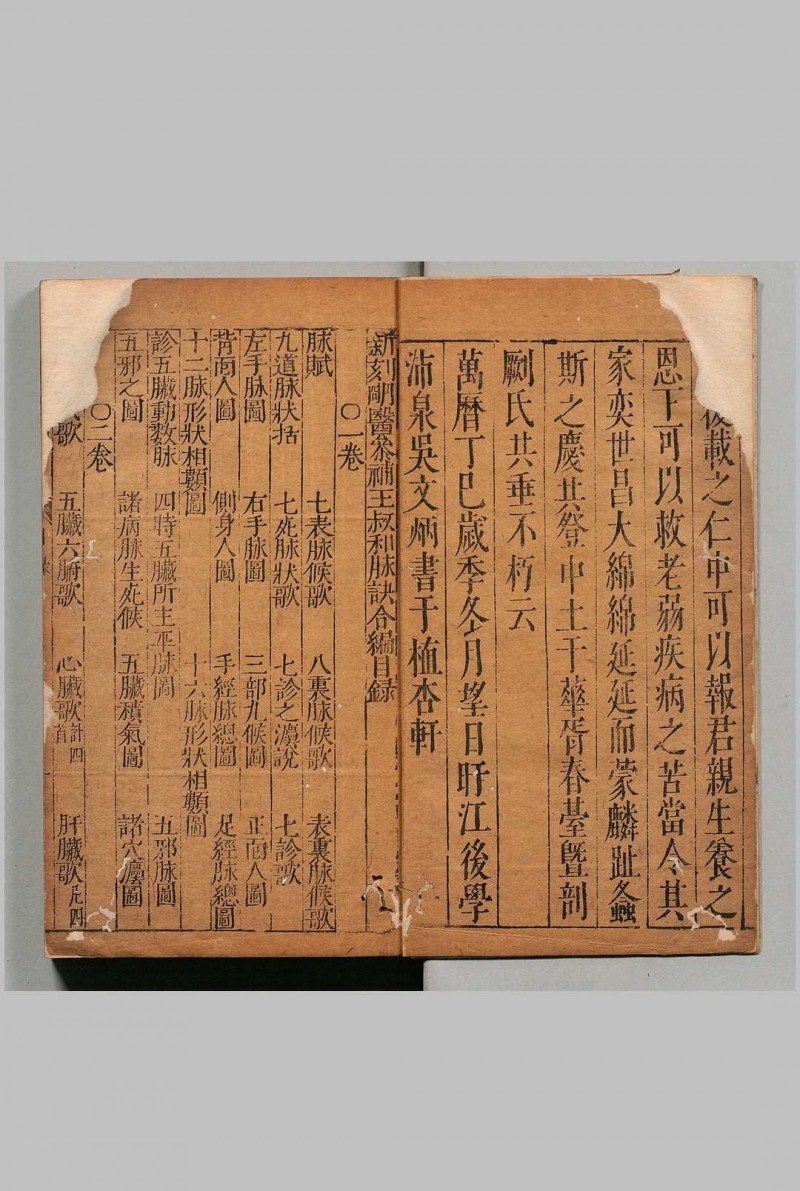 載之仁中可以報君親生養之
恩下可以救老弱疾病之苦當令其
家奕世昌大綿綿延延而蒙麟趾螽
斯之慶共登中土于華胥春臺曁剞
劂氏共垂不朽云
萬曆丁巳歲季冬月望日旴江後學
沛泉吳文炳書于植杏軒
新刻明醫叅補王叔和脉訣合編目録
〇一卷
脉賦 七表脉候歌 八裏脉候歌 表裏脉候歌
九道脉狀括 七死脉狀歌 七診之㳒說 七診歌
左手脉圖 右手脉圖 三部九候圖 正面人圖
背面人圖 側身人圖 手經脉總圖 足經脉總圖
十二脉形狀相類圖 十六脉形狀相類圖
診五臟動数脉 四時五臟所主平脉圖 五邪脉圖
五邪之圖 諸病脉生死候 五臟積氣圖 諸穴㳒圖
〇二卷
歌 五臟六腑歌 心臟歌計四首 肝臟歌凡四